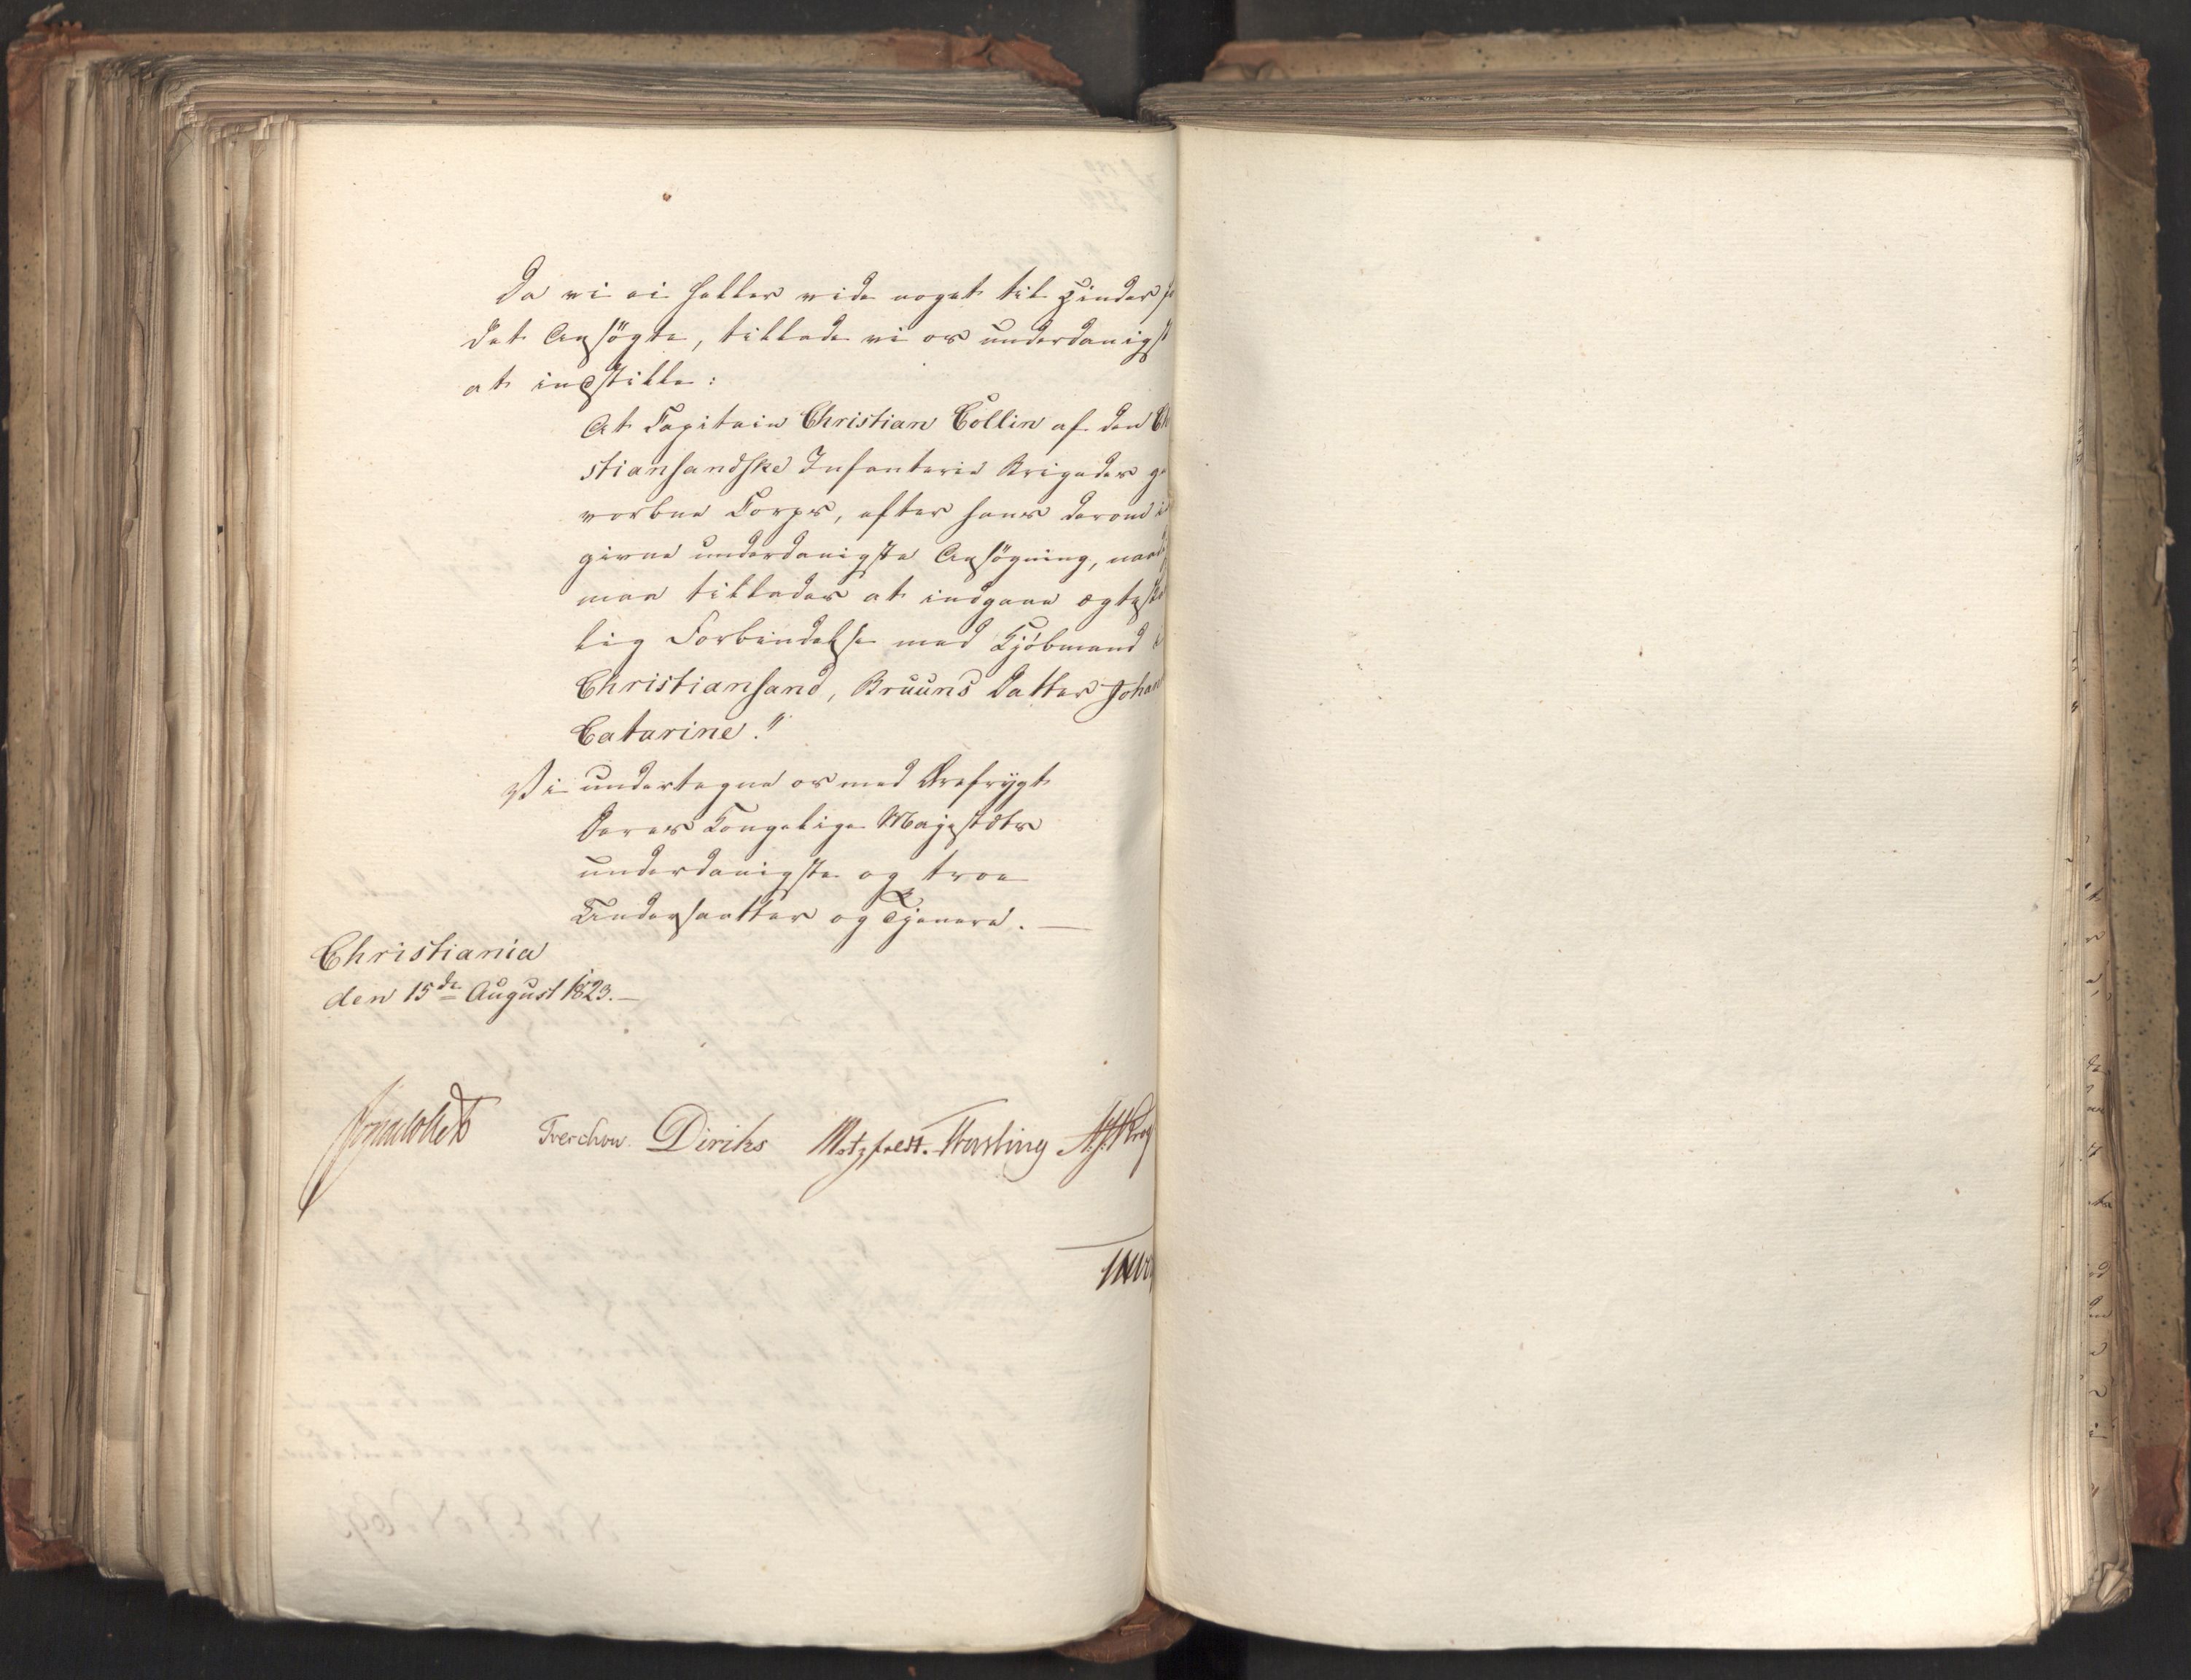 Da vi ei heller vide noget til Hinder
det Ansögte, tillade vi os underdanigst
at indstille:
At Capitain Christian Collin af den Ch
stiansandske Infanterie Brigades ge
vorbne Corps, efter hans derom
givne underdanigste Ansögning, naad
men tillades at indgaae ægteska
lig Forbindelse med Kjöbmand
Christiansand, Bruuns Datter Johan
Catarine."
Vi undertegne os med Ærefrygt
Deres Kongelige Majestæts
underdanigste og troe
Undersaatter og Tjenere. —
Christiania
den 15de August 1823. —
Jonas Collett Treschow. Diriks Motzfeldt. Fasting